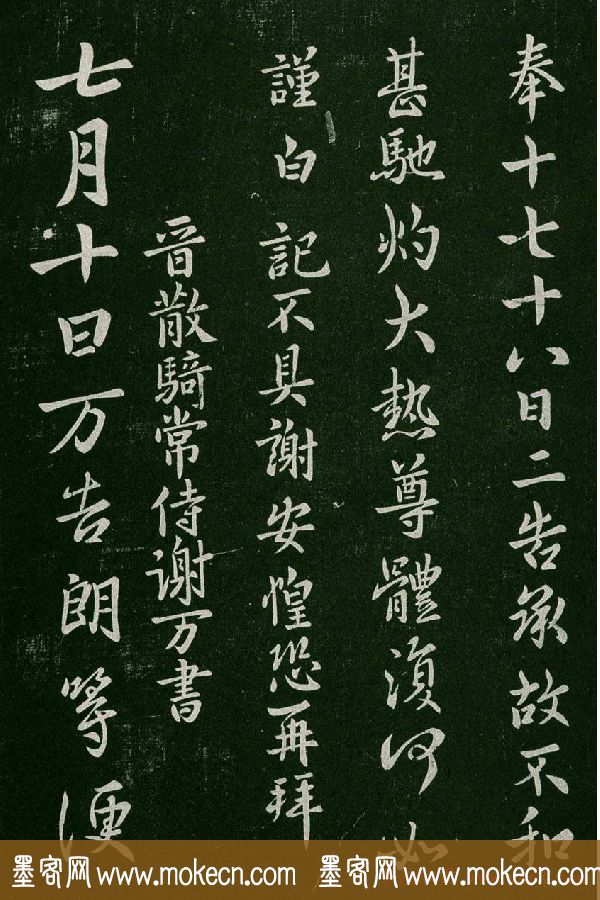 奉十七十八日二告承故不和
甚馳灼大熱尊體復何如
謹白記不具謝安惶恐再拜
晉散騎常侍謝万書
七月十日万告朗等便
墨客网 www.mokecn.com 墨客网 www.mokecn.com